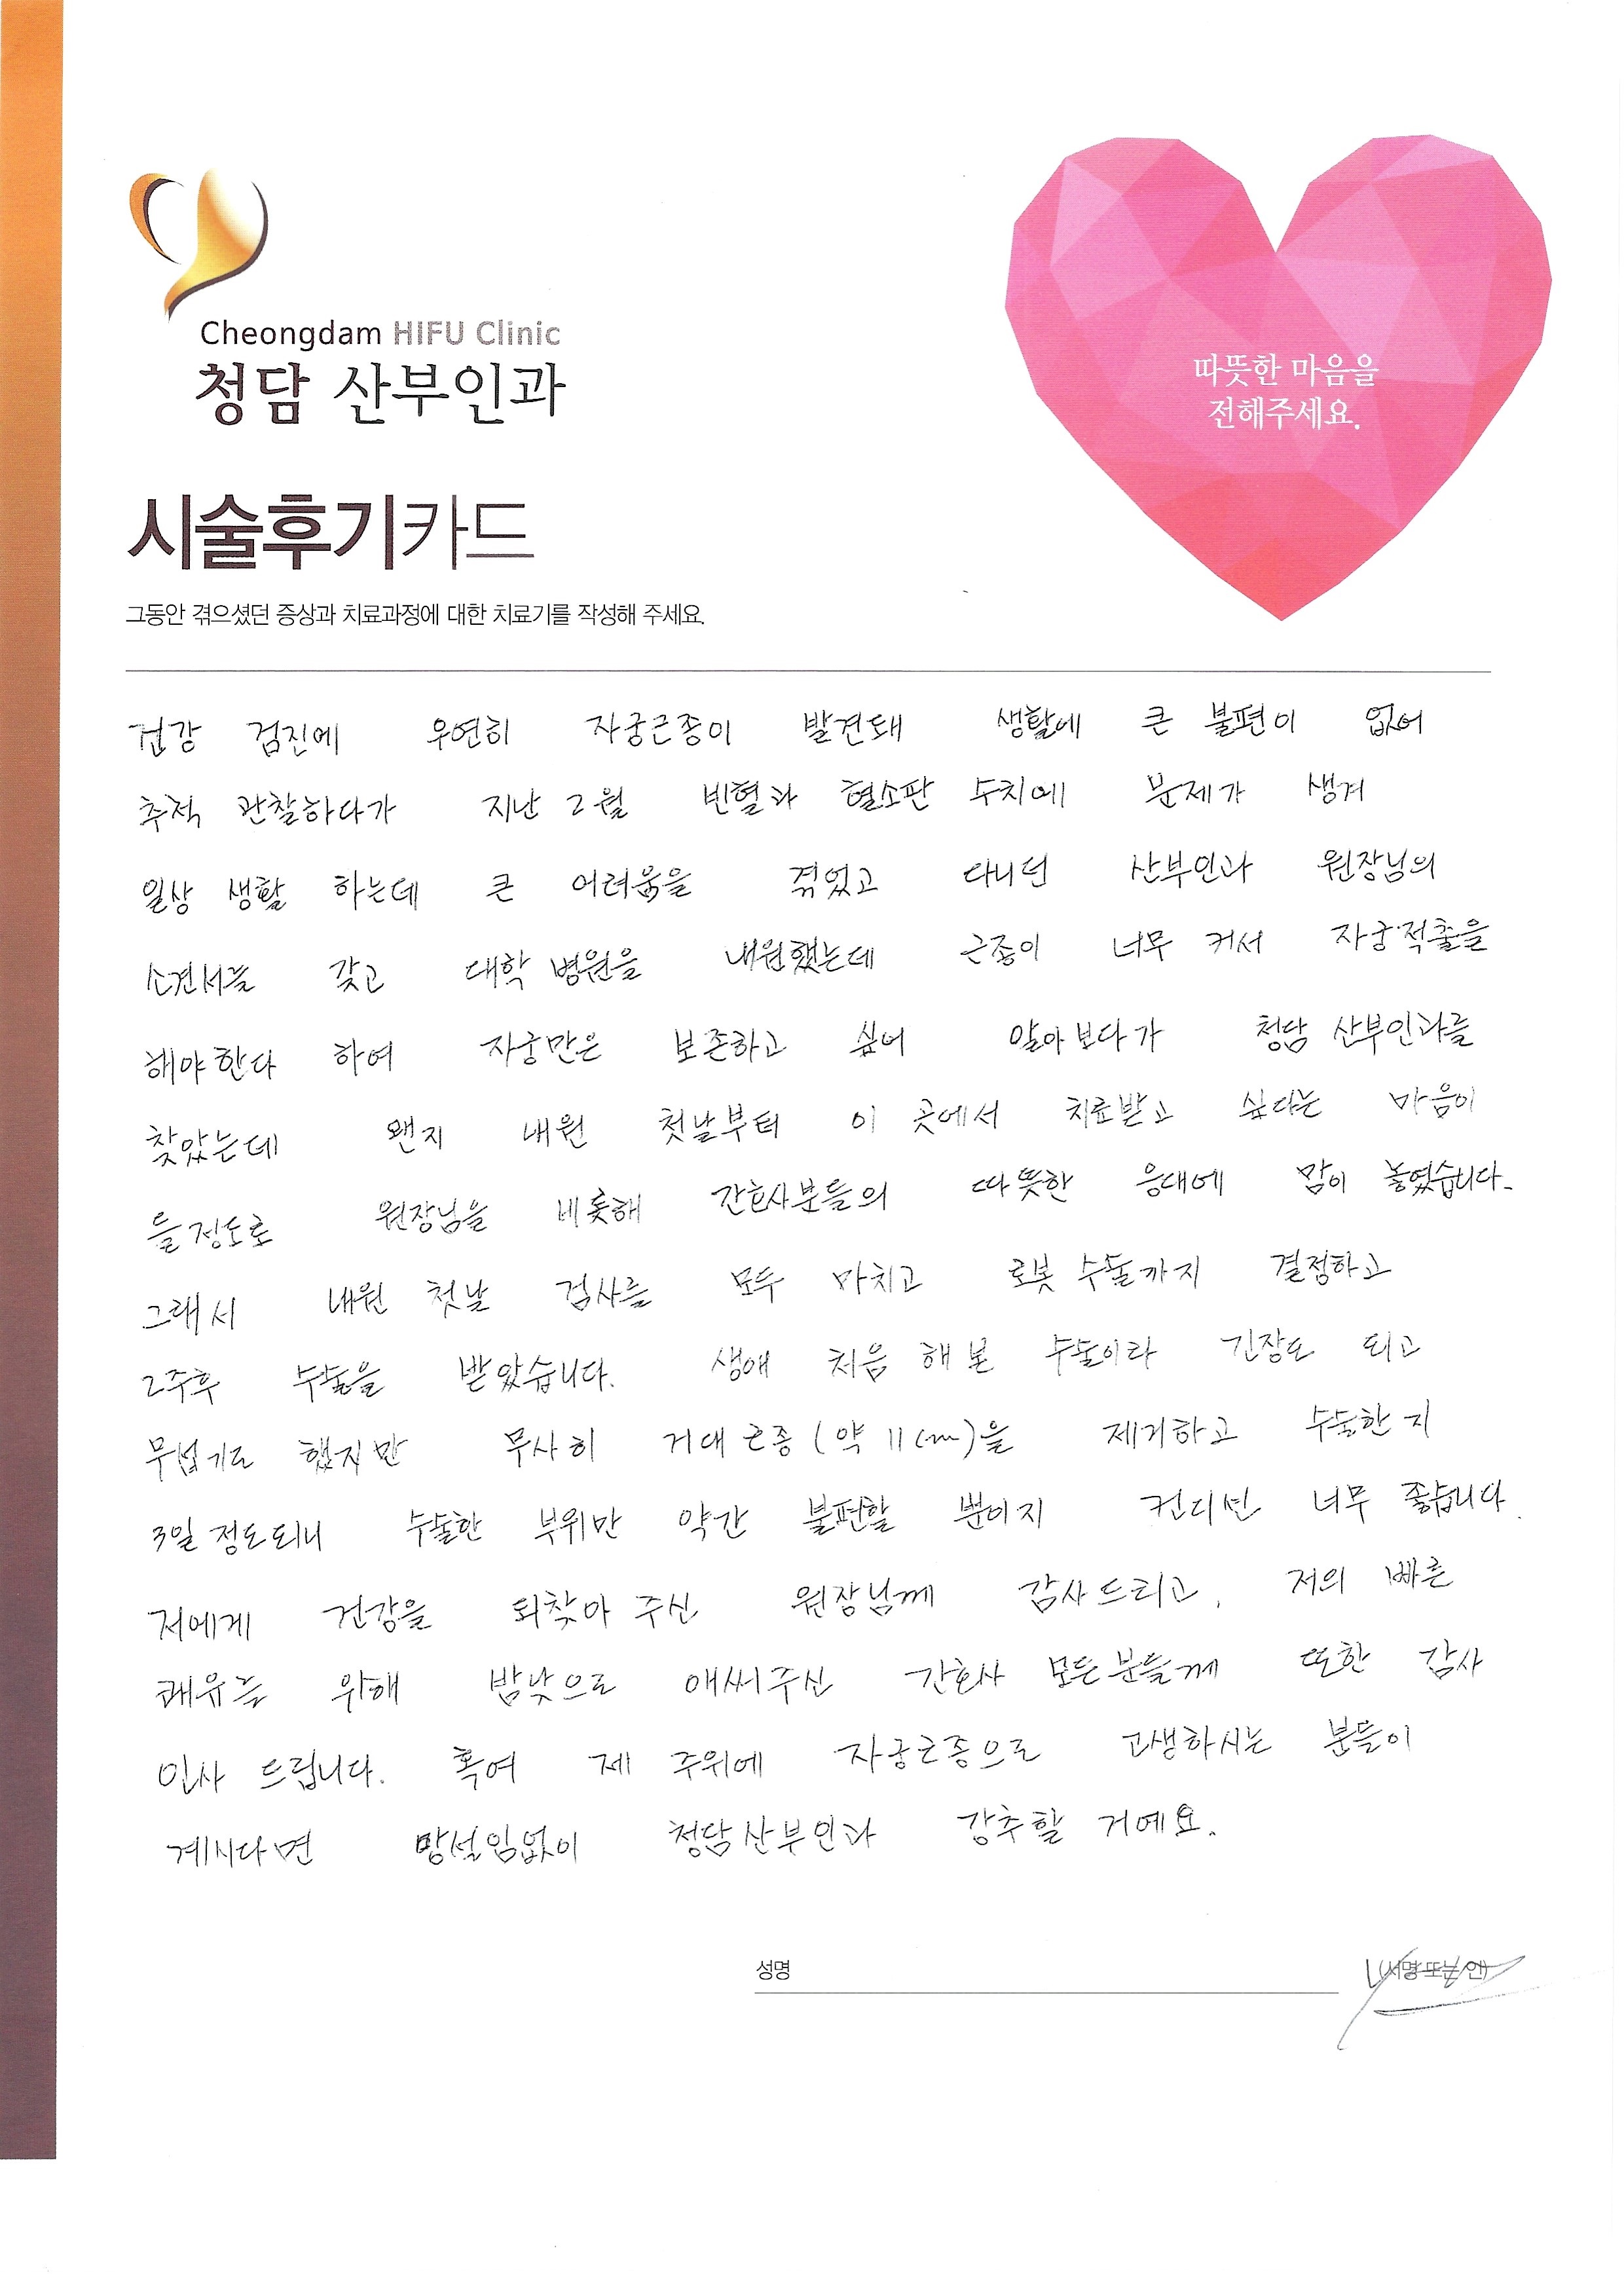 Cheongdam HIFU Clinic
청담 산부인과
따뜻한 마음을
전해주세요.
시술후기카드
그동안 겪으셨던 증상과 치료과정에 대한 치료기를 작성해 주세요.
건강 검진에 우연히 자궁근종이 발견돼 생활에 큰 불편이 없어
추적 관찰하다가 지난 2월 빈혈과 혈소판 수치에 문제가 생겨
일상 생활 하는데 큰 어려움을 겪었고 다니던 산부인과 원장님의
소견서를 갖고 대학 병원을 내원했는데 근종이 너무 커서 자궁적출을
해야한다 하여 자궁만은 보존하고 싶어 알아보다가 청담 산부인과를
찾았는데 왠지 내원 첫날부터 이 곳에서 치료받고 싶다는 마음이
들정도로 원장님을 비롯해 간호사분들의 따뜻한 응대에 맘이 놓였습니다.
그래서 내원 첫날 검사를 모두 마치고 로봇 수술까지 결정하고
2주후 수술을 받았습니다. 생애 처음 해본 수술이라 긴장도 되고
무섭기도 했지만 무사히 거대근종(약 11cm)을 제거하고 수술한지
3일 정도되니 수술한 부위만 약간 불편할 뿐이지 컨디션 너무 좋습니다.
저에게 건강을 되찾아 주신 원장님께 감사드리고, 저의 빠른
쾌유를 위해 밤낮으로 애써주신 간호사 모든분들께 또한 감사
인사 드립니다. 혹여 제 주위에 자궁근종으로 고생하시는 분들이
계시다면 망설임없이 청담산부인과 강추할 거예요.
성명 (서명 또는 인)